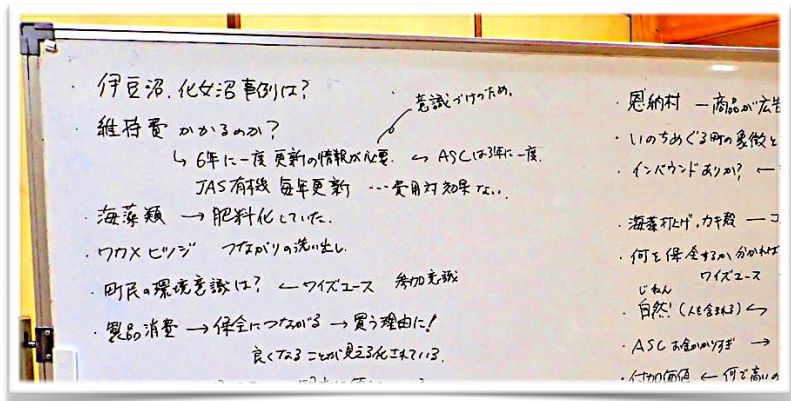 ・伊豆沼、化女沼事例は?
・維持費かかるのか?
意識づけのため。
↳ 6年に一度 更新の情報が必要. ← ASCは3年に一度.
JAS有機 毎年更新 …費用対効果ない.
・海藻類 → 肥料化していた.
・ワカメヒツジ つながりの洗い出し.
・町民の環境意識は? ← ワイズユース 参加意識
・製品消費 → 保全につながる → 買う理由に!
良くなることが見える化されている.
・恩納村 ー商品が広告
・いのちめぐる町の象徴と
・インバウンドありか? ←
・海藻打上げ、カキ殻 ー コ
・何を保全するか分かれば
ワイズユース
じねん
・自然!(人も含まれる) ←
・ASCお金かかりすぎ →
・付加価値 ← 何で高いの